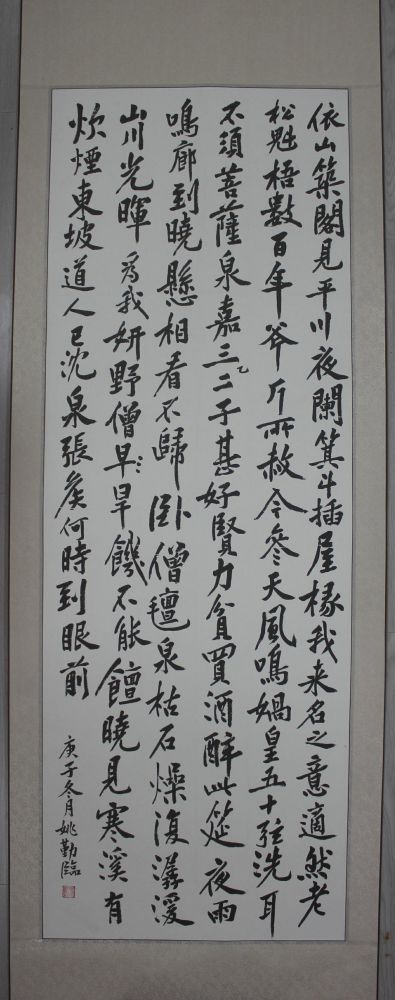 依山築閣見平川夜闌箕斗插屋椽我来名之意適然老
松魁梧數百年斧斤所赦今參天風鳴媧皇五十弦洗耳
不須菩薩泉嘉三二子甚好賢力貧買酒醉此筵夜雨
鳴廊到曉懸相看不歸臥僧氈泉枯石燥復潺湲
山川光暉為我妍野僧早旱饑不能饘曉見寒溪有
炊煙東坡道人已沈泉張侯何時到眼前
庚子冬月姚勤臨